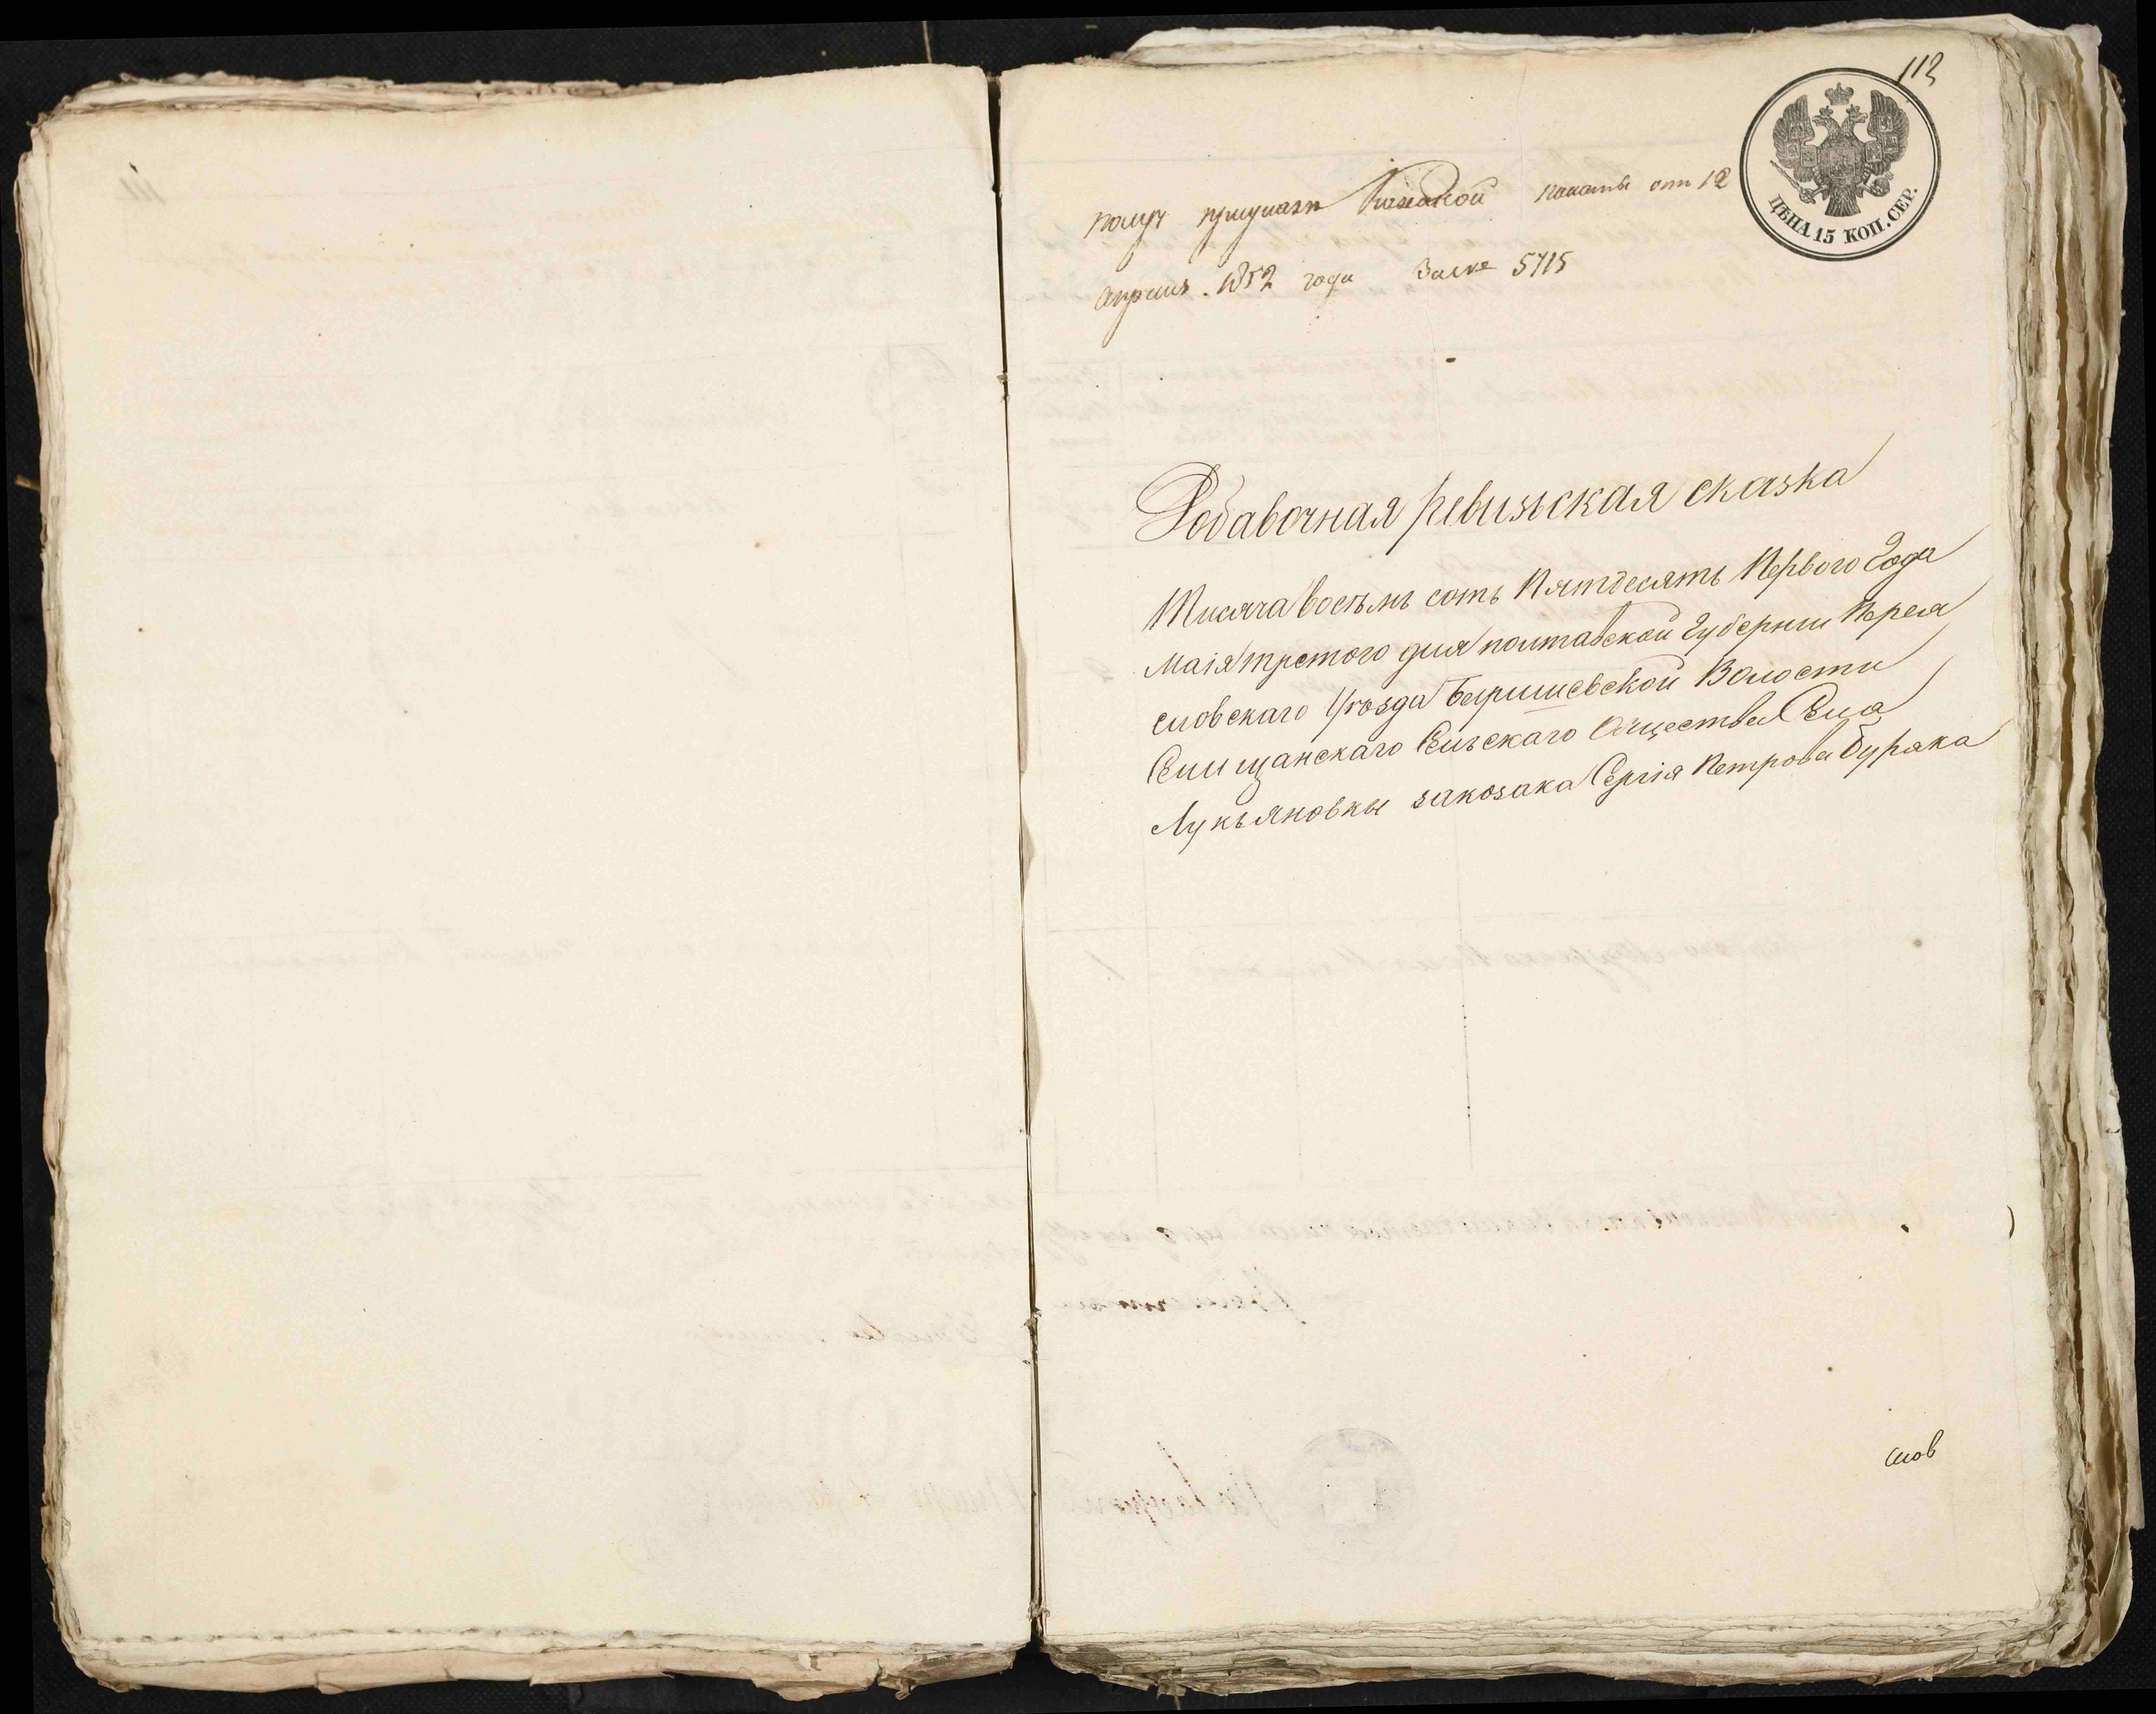 112
ЦѢНА 15 КОП. СЕР.
Казенной палаты отъ 12
Апреля 1852 года За № 5715
Добавочная ревизьская сказка
Тисяча восѣмъ сотъ Пятдесятъ Первого Года
маія третого дня полтавской Губерніи Перея
словскаго Уѣзда Баришевской Волости
Селищанскаго Сельскаго Общества Села
Лукъяновкы закозака Сергія Петрова Буряка
слов